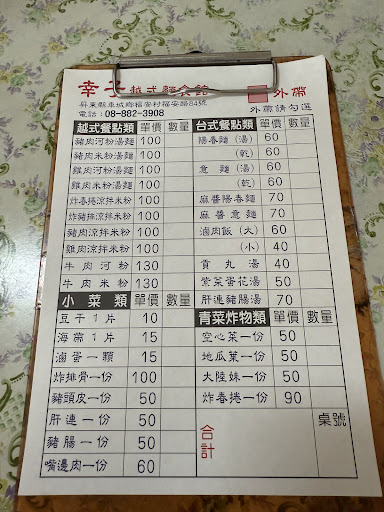 幸子越式麵食館
外帶
屏東縣車城鄉福安村福安路84號
電話：08-882-3908
外帶請勾選
越式餐點類 單價 數量
豬肉河粉湯麵 100
豬肉米粉湯麵 100
雞肉河粉湯麵 100
雞肉米粉湯麵 100
炸春捲涼拌米粉 100
炸豬排涼拌米粉 100
豬肉涼拌米粉 100
雞肉涼拌米粉 100
牛肉河粉 130
牛肉米粉 130
小菜類 單價 數量
豆干1片 10
海帶1片 15
滷蛋一顆 15
炸排骨一份 100
豬頭皮一份 50
肝連一份 50
豬腸一份 50
嘴邊肉一份 60
台式餐點類 單價 數量
陽春麵(湯) 60
(乾) 60
意麵(湯) 60
(乾) 60
麻醬陽春麵 70
麻醬意麵 70
滷肉飯(大) 60
(小) 40
貢丸湯 40
紫菜蛋花湯 50
肝連豬腸湯 70
青菜炸物類 單價 數量
空心菜一份 50
地瓜菜一份 50
大陸妹一份 50
炸春捲一份 90
合計
桌號